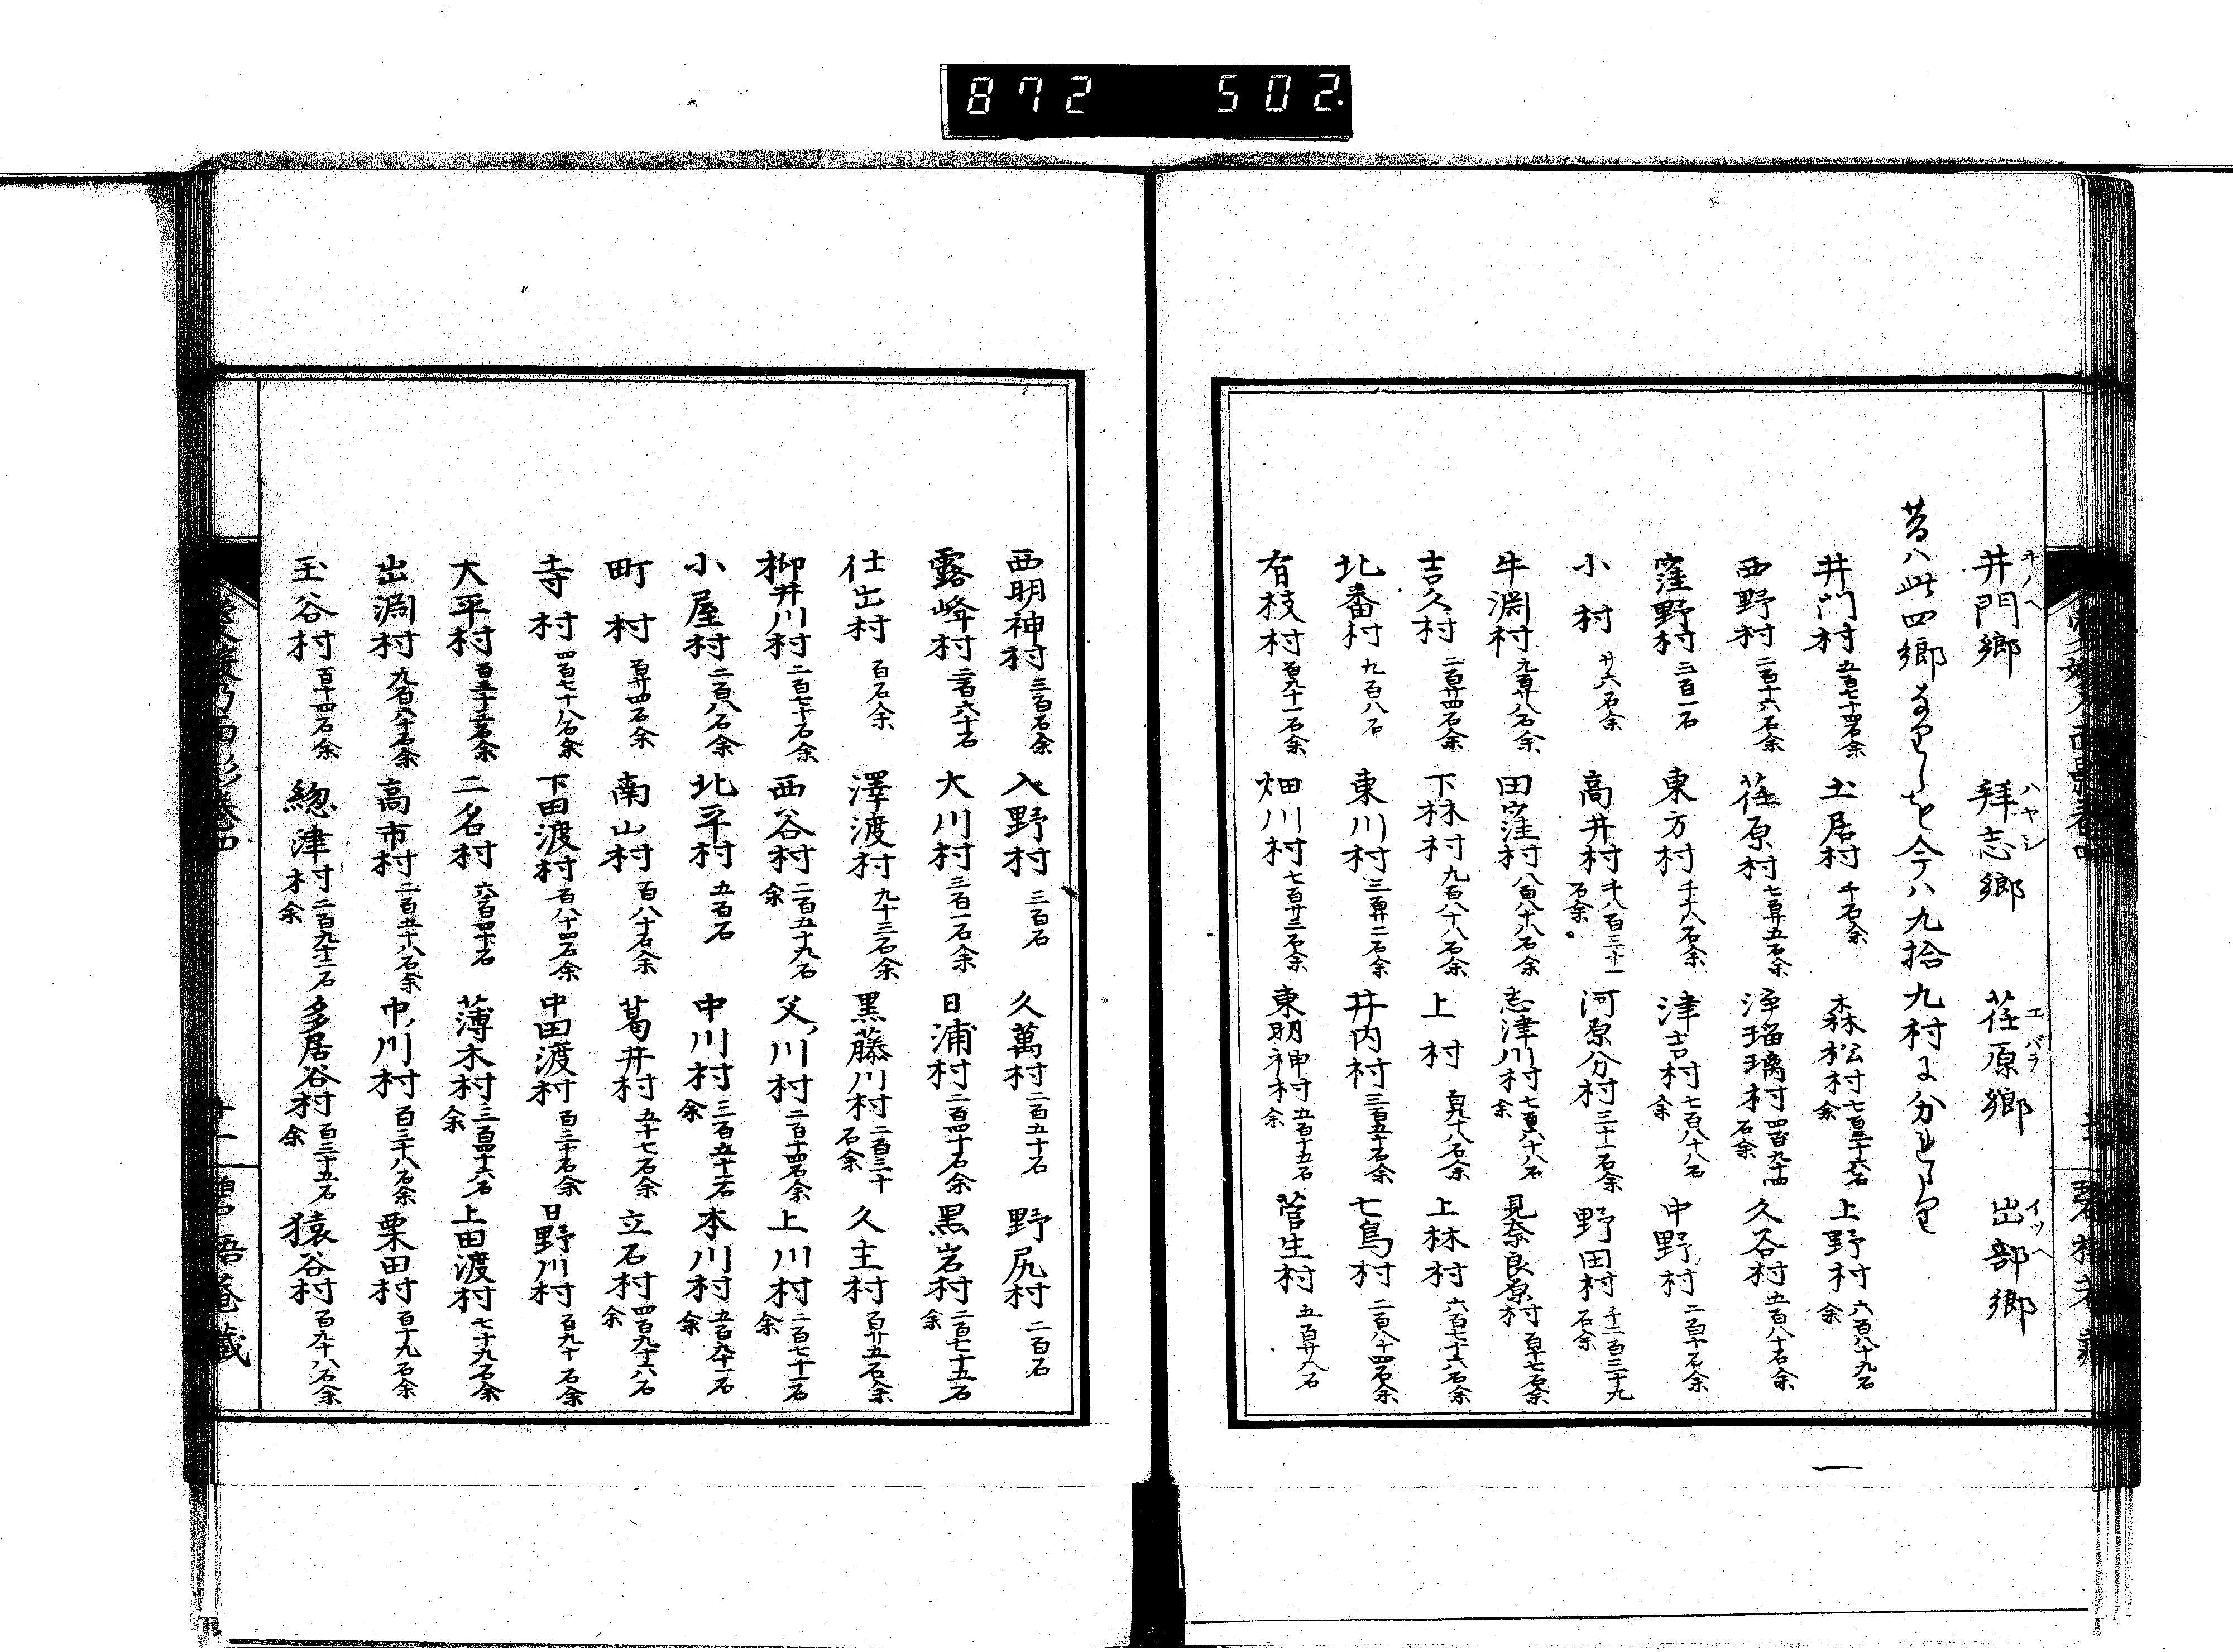 872 502.
井門郷 拜志郷 荏原郷 出部郷
ヰノヘ ハヤシ エバラ イツヘ
昔ハ此四郷なりしを今ハ九拾九村に分れたり
井門村 五百七十四石余 土居村 千石余 森松村 七百三十六石余 上野村 六百八十九石余
西野村 二百十六石余 荏原村 七百廿五石余 浄瑠璃村 四百九十四石余 久谷村 五百八十石余
窪野村 三百一石 東方村 千十八石余 津吉村 七百八十八石余 中野村 二百十石余
小村 廿六石余 高井村 千八百三十一石余 河原分村 三十一石余 野田村 千二百三十九石余
牛淵村 九百廿八石余 田窪村 八百八十八石余 志津川村 七百六十八石余 見奈良原村 百十七石余
吉久村 二百廿四石余 下林村 九百八十八石余 上村 上林村 六百七十六石余
北番村 九百八石 東川村 三百廿二石余 井内村 三百五十石余 七鳥村 二百八十四石余
有枝村 百九十一石余 畑川村 七百廿三石余 東明神村 五百十五石余 菅生村 五百廿八石
西明神村 三百石余 入野村 三百石 久萬村 二百五十石 野尻村 二百石
露峰村 二百六十石 大川村 三百一石余 日浦村 二百四十石余 黒岩村 二百七十五石余
仕出村 百石余 澤渡村 九十三石余 黒藤川村 二百三十石余 久主村 百廿五石余
柳井川村 二百七十石余 西谷村 二百五十九石余 父ノ川村 二百十四石余 上川村 二百七十一石余
小屋村 二百八石余 北平村 五百石 中川村 三百五十二石余 本川村 五百九十一石余
町村 百廿四石余 南山村 百八十石余 葛井村 五十七石余 立石村 四百九十六石余
寺村 四百七十八石余 下田渡村 百八十四石余 中田渡村 百三十石余 日野川村 百九十石余
大平村 百五十三石余 二名村 六百四十石 薄木村 三百四十六石余 上田渡村 七十九石余
出淵村 九百六十石余 高市村 二百五十八石余 中ノ川村 百三十八石余 栗田村 百十九石余
玉谷村 百十四石余 總津村 二百九十二石余 多居谷村 百三十五石余 猿谷村 百九十八石余
愛媛乃面影卷四 廿一 碧梧菴藏